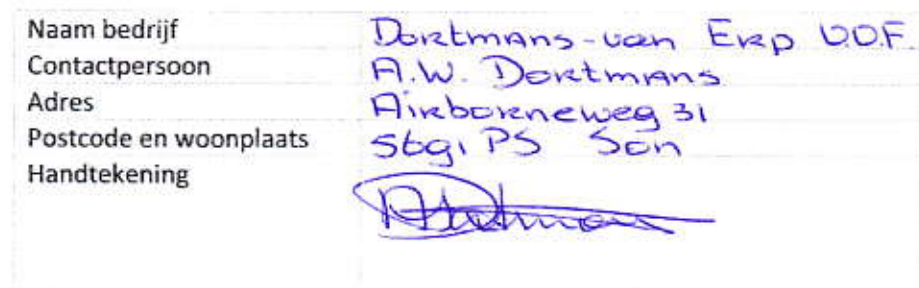 Naam bedrijf Dortmans-van Erp V.O.F.
Contactpersoon A.W. Dortmans
Adres Airborneweg 31
Postcode en woonplaats 5691 PS Son
Handtekening